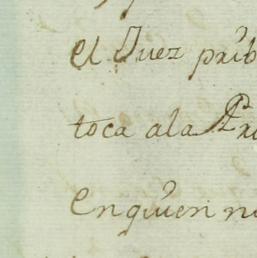 el Juez prib
toca ala Pri
enquien n